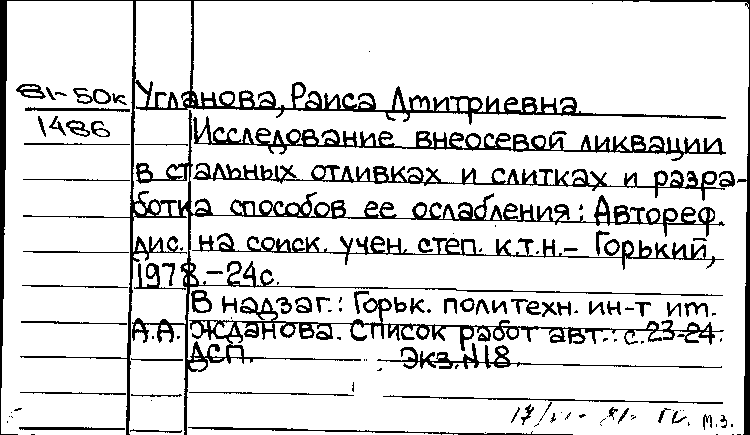 81-50к Угланова, Раиса Дмитриевна.
1486 Исследование внеосевой ликвации
в стальных отливках и слитках и разра-
ботка способов ее ослабления: Автореф.
дис. на соиск. учен. степ. к.т.н.- Горький,
1978.-24с.
В надзаг.: Горьк. политехн. ин-т им.
А.А. Жданова. Список работ авт.: с.23-24.
ДСП. Экз.N18.
м.з.